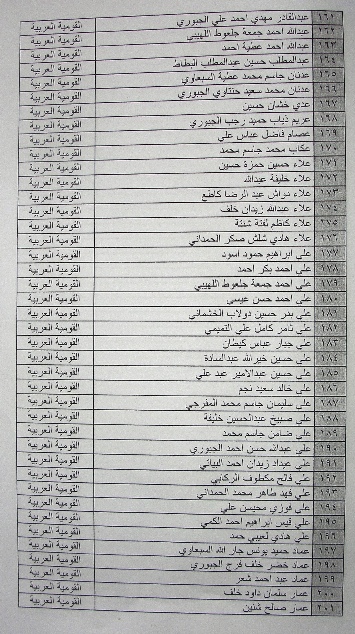 ١٦١ عبدالقادر مهدي احمد علي الجبوري القومية العربية
١٦٢ عبدالله احمد جمعة جلعوط اللهيبي القومية العربية
١٦٣ عبدالله احمد عطية احمد القومية العربية
١٦٤ عبدالمطلب حسين عبدالمطلب البطاط القومية العربية
١٦٥ عدنان جاسم محمد عطية السبعاوي القومية العربية
١٦٦ عدنان محمد سعيد حنتاوي الجبوري القومية العربية
١٦٧ عدي خشان حسين القومية العربية
١٦٨ عريم ذياب حميد رجب الجبوري القومية العربية
١٦٩ عصام فاضل عباس علي القومية العربية
١٧٠ عكاب محمد جاسم محمد القومية العربية
١٧١ علاء حسين حمزة حسين القومية العربية
١٧٢ علاء خليفة عبدالله القومية العربية
١٧٣ علاء دواش عبد الرضا كاطع القومية العربية
١٧٤ علاء عبدالله زيدان خلف القومية العربية
١٧٥ علاء كاظم لفتة القومية العربية
١٧٦ علاء هادي شلش صكر الحمداني القومية العربية
١٧٧ علي ابراهيم حمود اسود القومية العربية
١٧٨ علي احمد بكر احمد القومية العربية
١٧٩ علي احمد جمعة جلعوط اللهيبي القومية العربية
١٨٠ علي احمد حسن عيسى القومية العربية
١٨١ علي بدر حسين دولاب الخشماني القومية العربية
١٨٢ علي ثامر كامل علي التميمي القومية العربية
١٨٣ علي جبار عباس كيطان القومية العربية
١٨٤ علي حسين خيرالله عبدالسادة القومية العربية
١٨٥ علي حسين عبدالامير عبد علي القومية العربية
١٨٦ علي خالد سعيد نجم القومية العربية
١٨٧ علي سلمان جاسم محمد المفرجي القومية العربية
١٨٨ علي صبيح عبدالحسين خليفة القومية العربية
١٨٩ علي ضامن جاسم محمد القومية العربية
١٩٠ علي عبدالله حسن احمد الجبوري القومية العربية
١٩١ علي عبداد زيدان احمد البياتي القومية العربية
١٩٢ علي فالح مكطوف الركابي القومية العربية
١٩٣ علي فهد طاهر محمد الحمداني القومية العربية
١٩٤ علي فوزي محيسن علي القومية العربية
١٩٥ علي قيس ابراهيم احمد الكمي القومية العربية
١٩٦ علي هادي لعيبي حمد القومية العربية
١٩٧ عماد حميد يونس جار الله السبعاوي القومية العربية
١٩٨ عماد خضر خلف فرج الجبوري القومية العربية
١٩٩ عماد عبد احمد شعر القومية العربية
٢٠٠ عمار سلمان داود خلف القومية العربية
٢٠١ عمار صالح شنين القومية العربية